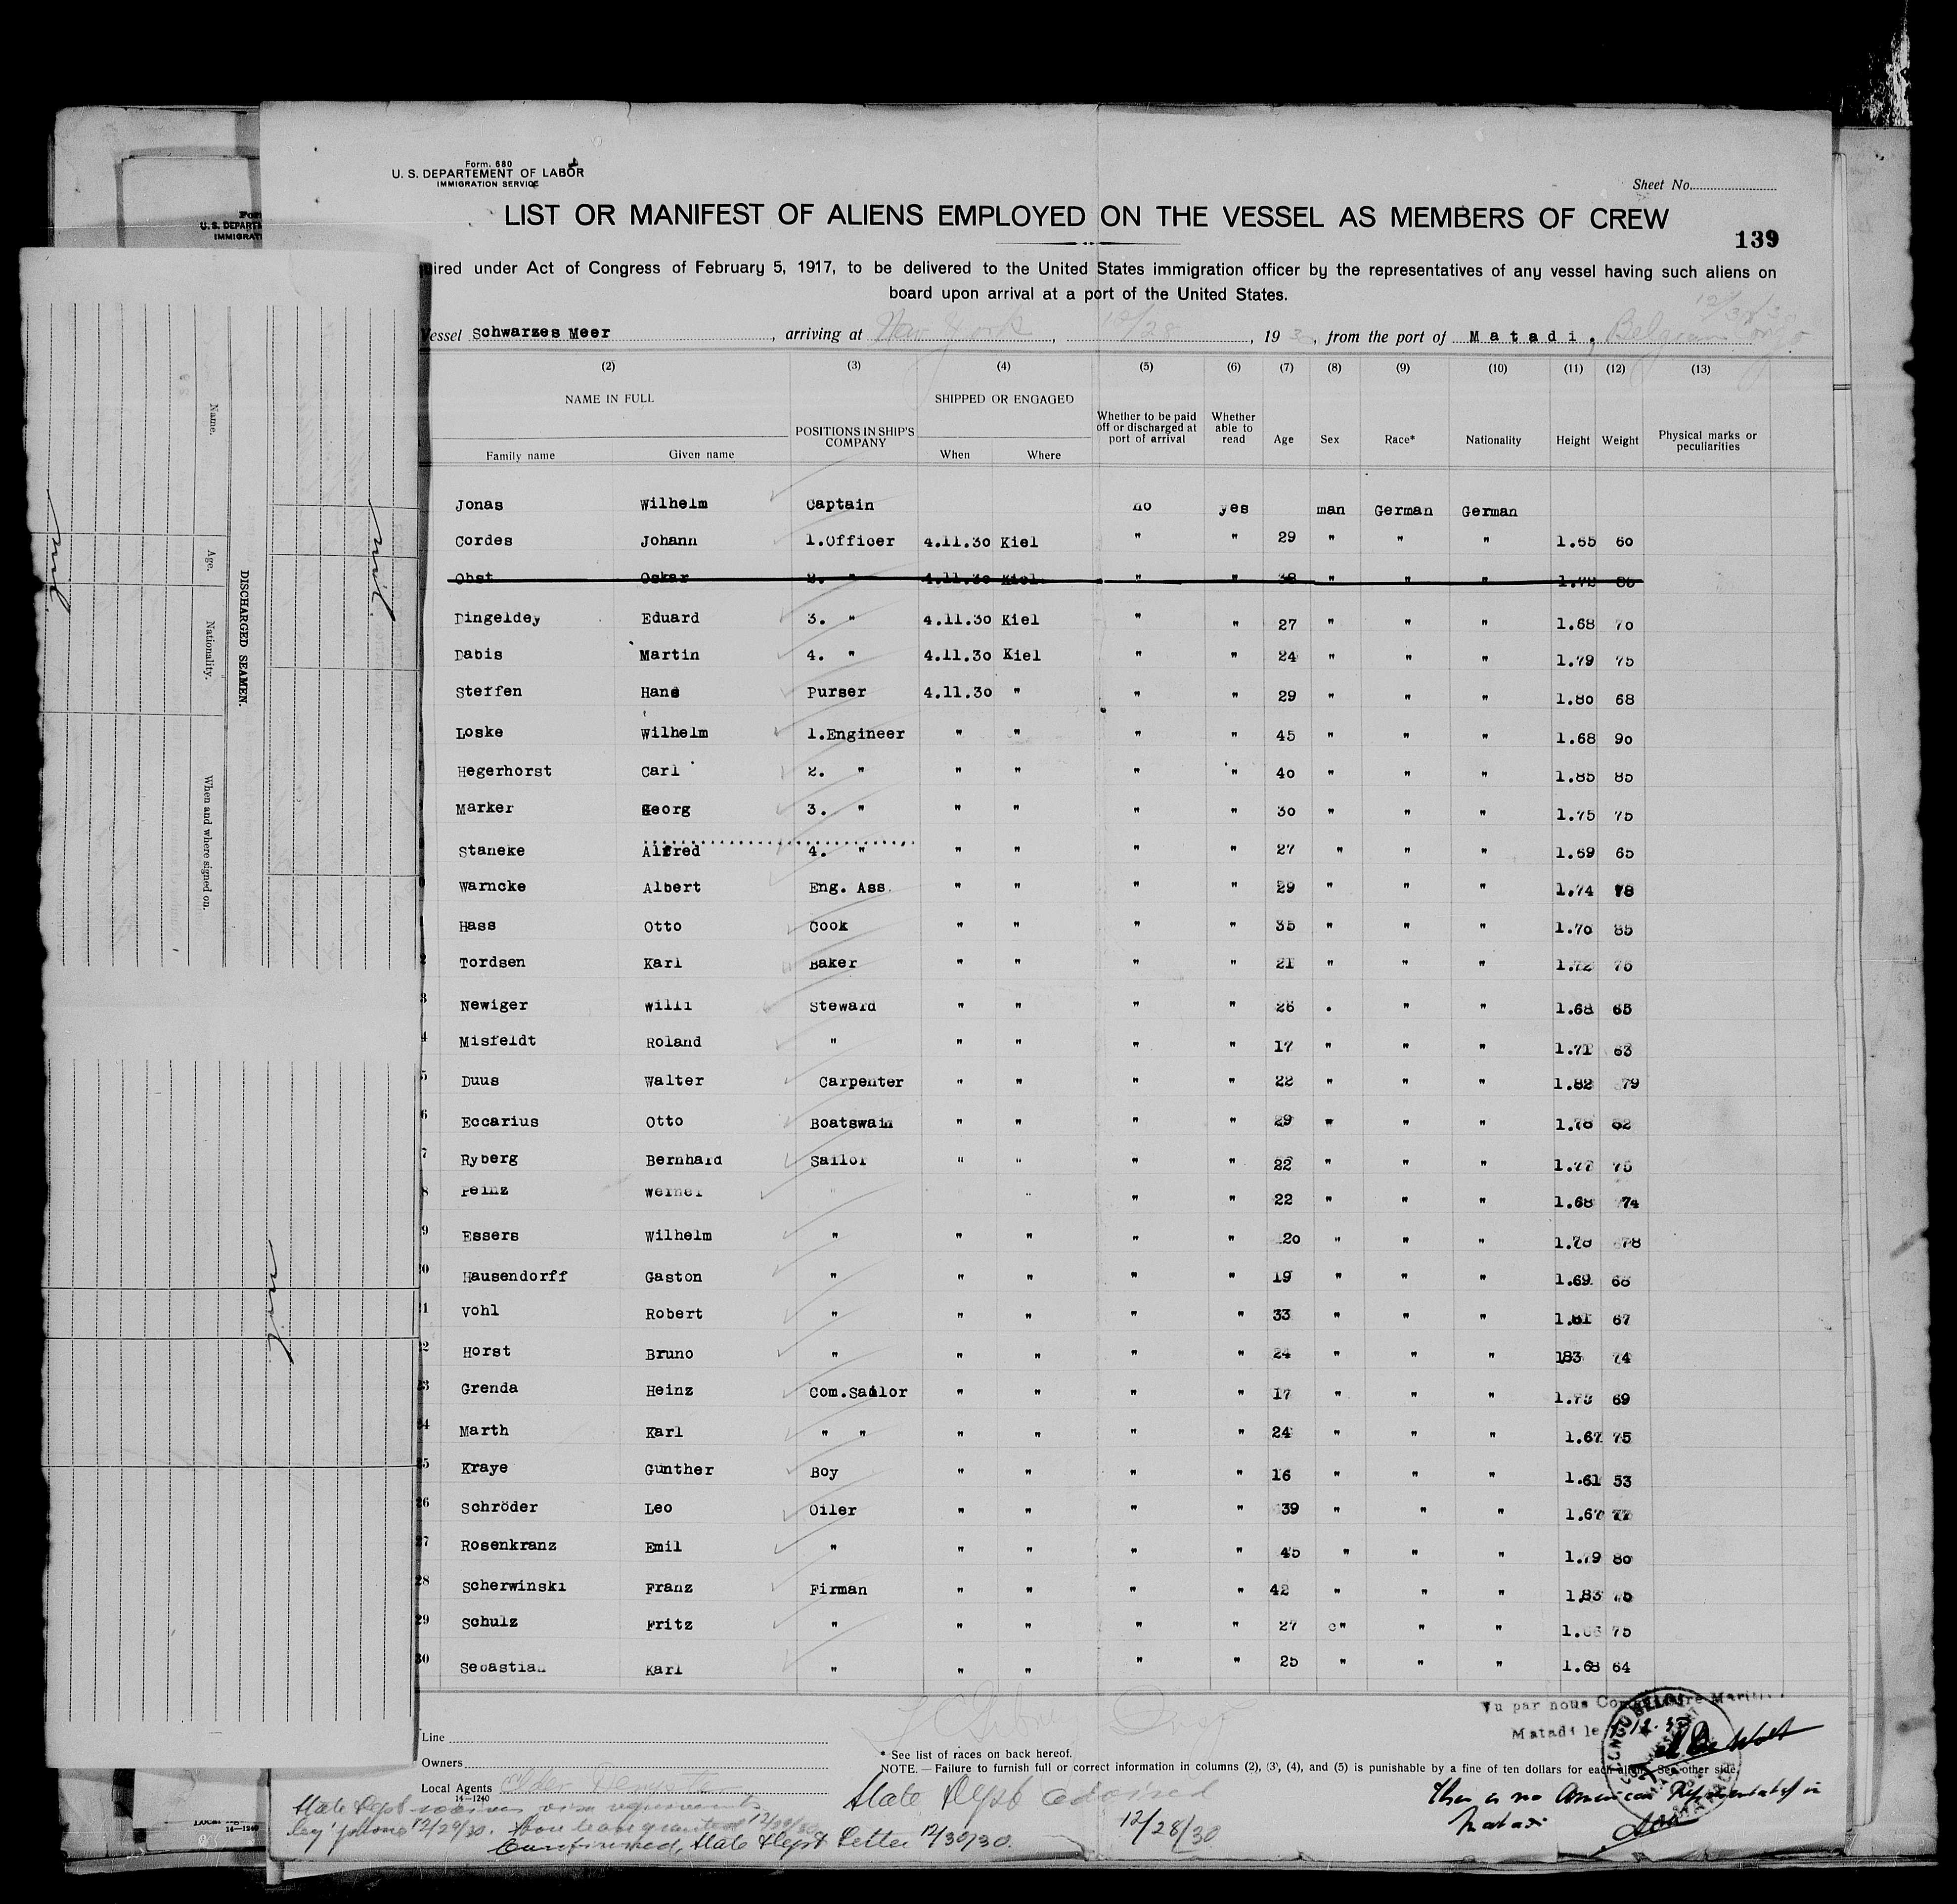 Form. 680
U. S. DEPARTEMENT OF LABOR
IMMIGRATION SERVICE
Sheet No.
LIST OR MANIFEST OF ALIENS EMPLOYED ON THE VESSEL AS MEMBERS OF CREW
139
uired under Act of Congress of February 5, 1917, to be delivered to the United States immigration officer by the representatives of any vessel having such aliens on
board upon arrival at a port of the United States.
Vessel Schwarzes Meer, arriving at New York, 12/28, 193, from the port of Matadi, Belgian Congo
(2) (3) (4) (5) (6) (7) (8) (9) (10) (11) (12) (13)
NAME IN FULL POSITIONS IN SHIP'S COMPANY SHIPPED OR ENGAGED Whether to be paid off or discharged at port of arrival Whether able to read Age Sex Race* Nationality Height Weight Physical marks or peculiarities
Family name Given name When Where
Jonas Wilhelm Captain no yes man German German
Cordes Johann 1.Officer 4.11.30 Kiel " " 29 " " " 1.65 60
Obst Oskar 2. " 4.11.30 Kiel " " 38 " " "
Dingeldey Eduard 3. " 4.11.30 Kiel " " 27 " " " 1.68 70
Dabis Martin 4. " 4.11.30 Kiel " " 24 " " " 1.79 75
Steffen Hans Purser 4.11.30 " " " 29 " " " 1.80 68
Loske Wilhelm 1.Engineer " " " " 45 " " " 1.68 90
Hegerhorst Carl 2. " " " " " 40 " " " 1.85 85
Marker Georg 3. " " " " " 30 " " " 1.75 75
Staneke Alfred 4. " " " " " 27 " " " 1.69 65
Warncke Albert Eng. Ass. " " " " 29 " " " 1.74 78
Hass Otto Cook " " " " 35 " " " 1.70 85
Tordsen Karl Baker " " " " 21 " " " 1.72 75
3 Newiger Willi Steward " " " " 26 . " " 1.68 65
4 Misfeldt Roland " " " " " 17 " " " 1.71 63
5 Duus Walter Carpenter " " " " 22 " " " 1.82 79
6 Eccarius Otto Boatswain " " " " 29 " " " 1.78
7 Ryberg Bernhard Sailor " " " " 22 " " " 1.77 75
8 Peinz Werner " " " " 22 " " " 1.68 74
9 Essers Wilhelm " " " " " 20 " " " 1.78 78
20 Hausendorff Gaston " " " " " 19 " " " 1.69 68
21 Vohl Robert " " " " " 33 " " " 1.81 67
22 Horst Bruno " " " " " 24 " " " 183 74
23 Grenda Heinz Com.Sailor " " " " 17 " " " 1.75 69
24 Marth Karl " " " " " " 24 " " " 1.67 75
25 Kraye Gunther Boy " " " " 16 " " " 1.61 53
26 Schröder Leo Oiler " " " " 39 " " " 1.67 77
27 Rosenkranz Emil " " " " " 45 " " " 1.79 80
28 Scherwinski Franz Firman " " " " 42 " " " 1.83 75
29 Schulz Fritz " " " " " 27 " " " 75
30 Sebastian Karl " " " " " 25 " " " 1.68 64
Vu par nous Commissaire Maritime
Matadi le
CONGO BELGE
Line
Owners
Local Agents Elder Dempster
14-1240
* See list of races on back hereof.
NOTE.—Failure to furnish full or correct information in columns (2), (3), (4), and (5) is punishable by a fine of ten dollars for each alien. See other side.
State Dept advised
12/28/30
There is no American Representative in
Matadi
State Dept waives visa requirements
by phone 12/29/30. Shore leave granted 12/29/30
Confirmed, State Dept Letter 12/30/30.
DISCHARGED SEAMEN.
Name.
Age.
Nationality.
When and where signed on.
nil
nil
nil
U. S. DEPART
IMMIGRAT
14-1240